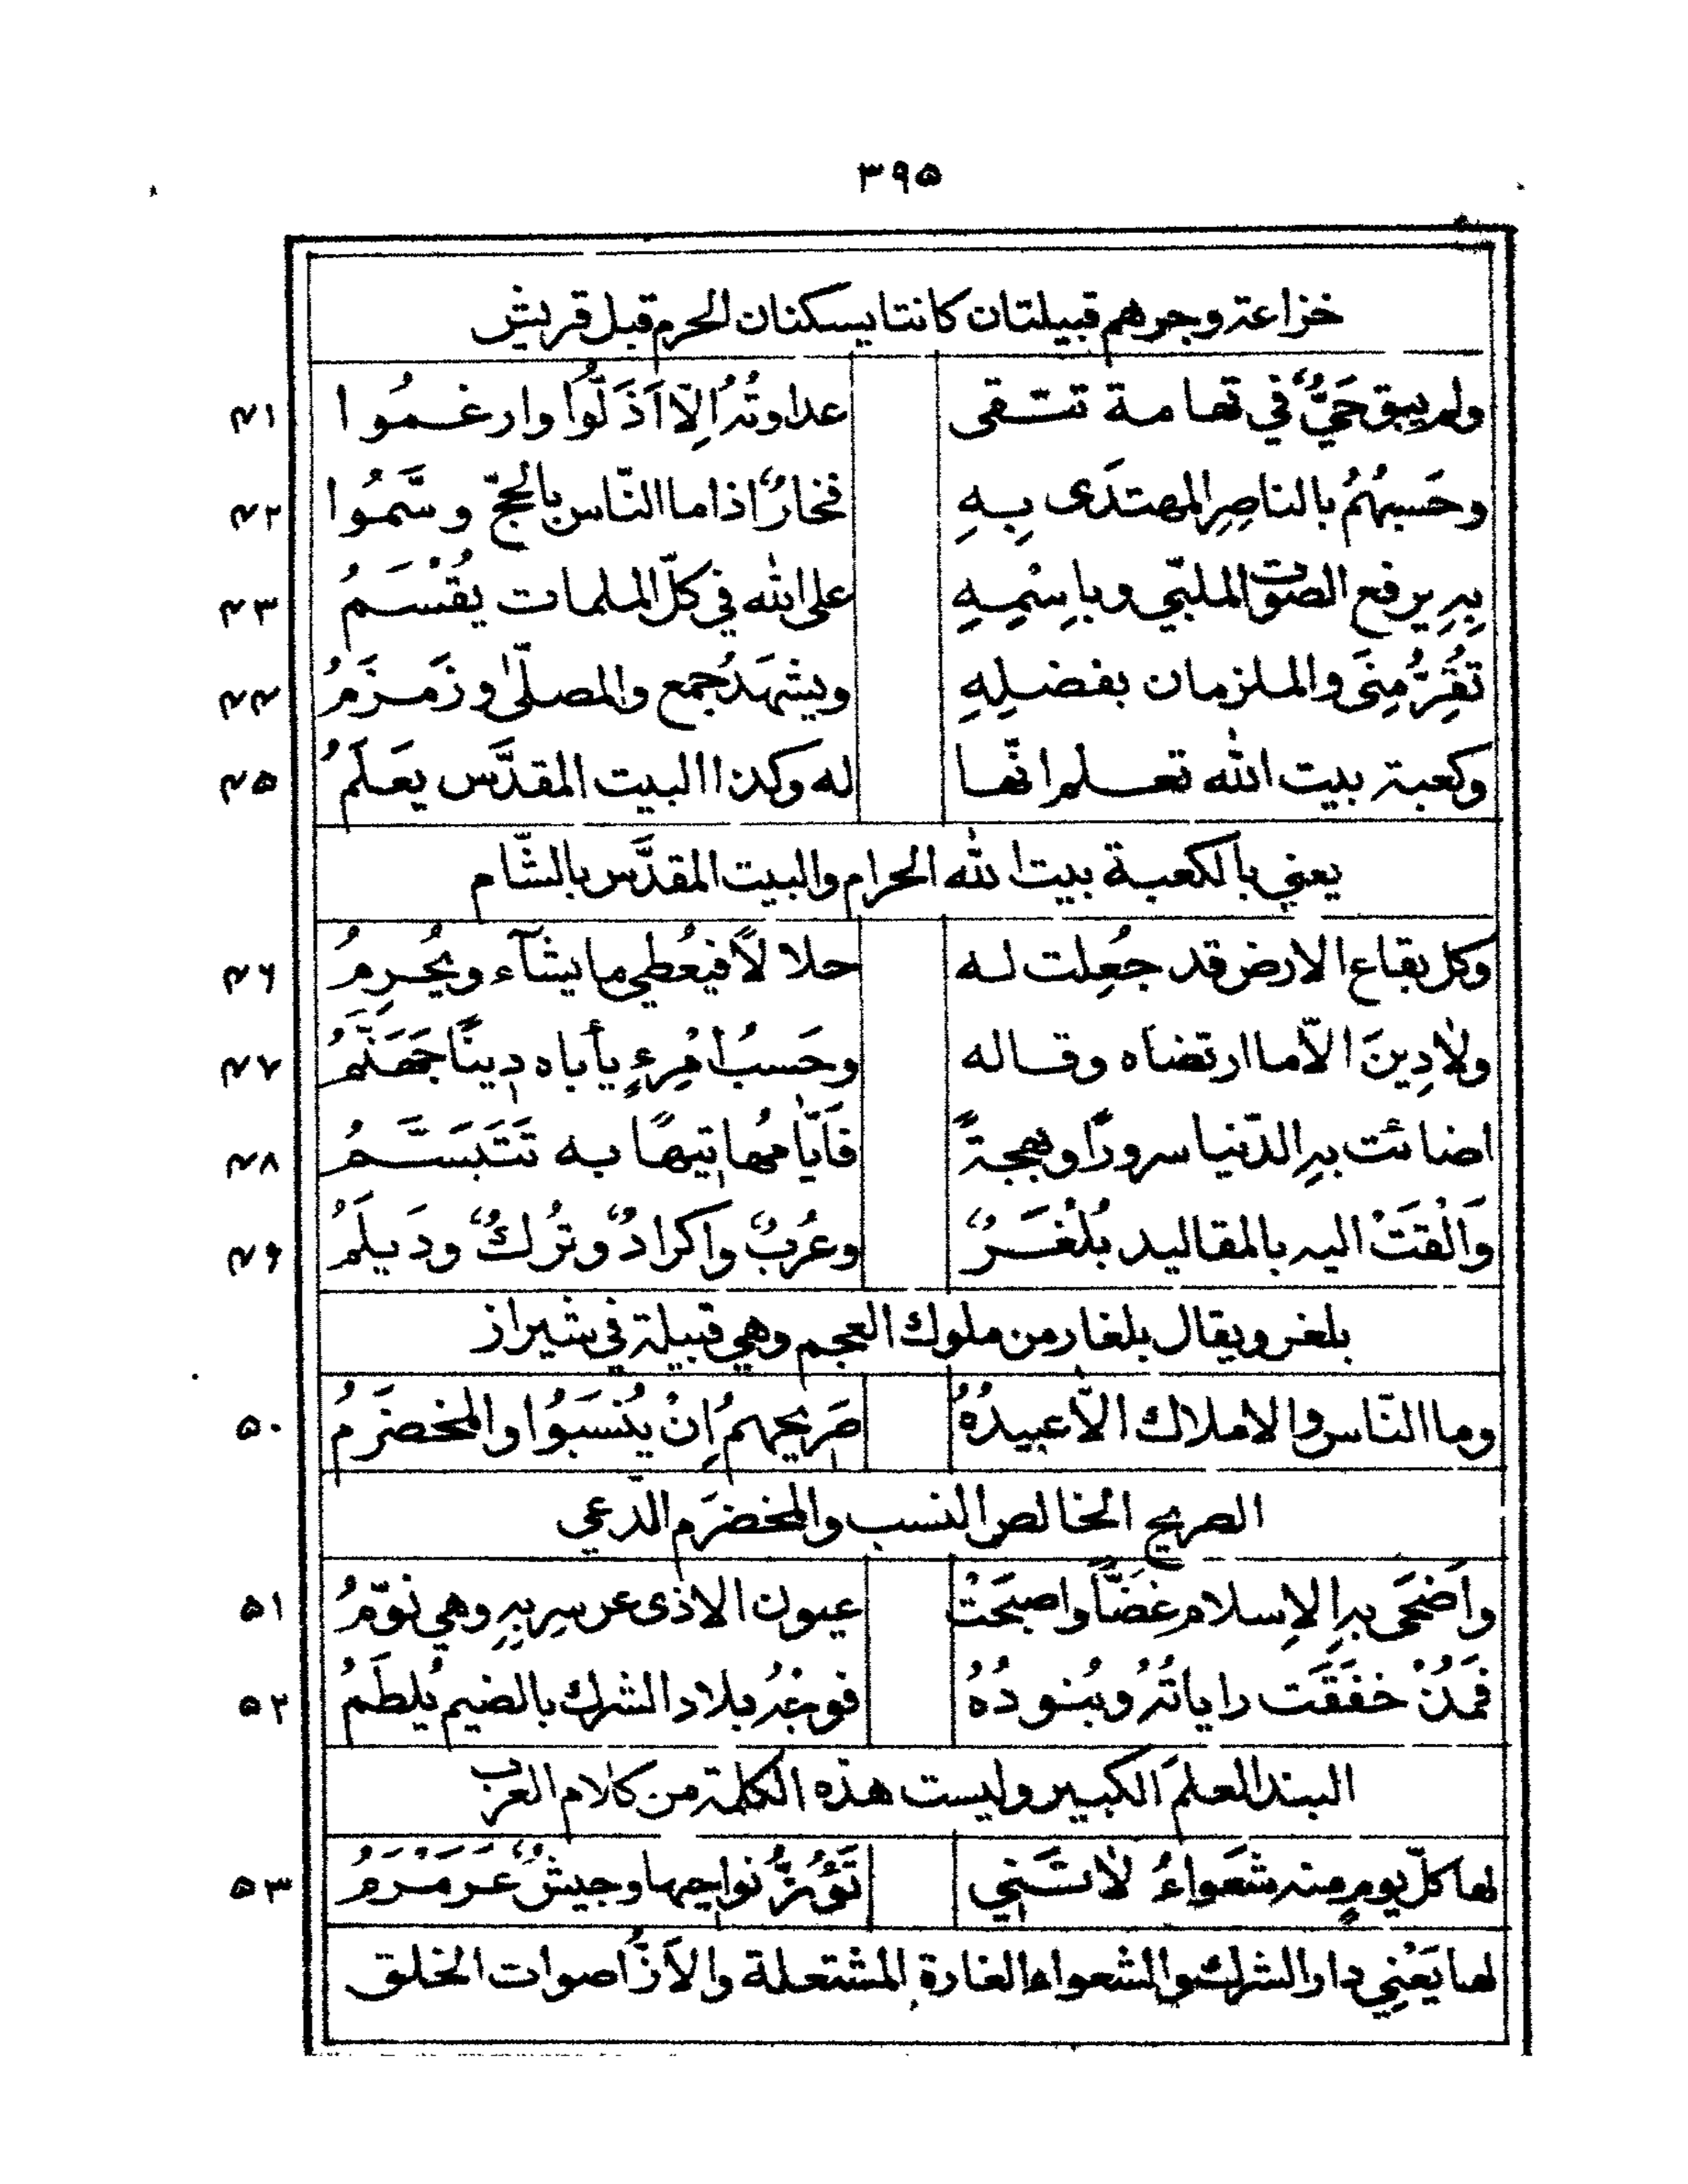 ٣٩٥
خزاعة وجرهم قبيلتان كانتا يسكنان الحرم قبل قريش
ولم يبق حَيٌّ في تهامة تتـّقى عداوتُهُ اِلّا اَذَلّوُا وارغمُوا ٤١
وحَسبهُمُ بالناصِرِ المهتدَى بِهِ فخارٌ اذا ما النّاس بالحجّ وسَّمُوا ٤٢
بِهِ يرفع الصوت الملبّي وباِسْمِهِ على الله في كلّ الملمات يقُسْمَُ ٤٣
تقُِرُّ مِنىَ والملزمان بفضلِهِ ويشهَدُ جمع والمصلّىٰ وزَمزَمُ ٤٤
وكعبة بيت الله تعلم انّها له وكذا البيت المقدَّس يعَلَمُ ٤٥
يعني بالكعبة بيت الله الحرام والبيت المقدَّس بالشّام
وكل بقاع الارض قد جعُِلت له حلالاً فيعُطي ما يشآء ويحُرِمُ ٤٦
ولا دِينَ الاّ ما ارتضاه وقاله وحَسبُ امْرِءٍ يأباه دِينًا جَهَنَّمُ ٤٧
اضائت بِهِ الدّنيا سرورًا وبهجةً فَاَيّامُها تيهًا به تَتَبَسَّمُ ٤٨
وَالْقتَْ اليه بالمقاليد بُلْغَرٌ وعُربٌ واكرادٌ وتُركٌ ودَيلَمُ ٤٩
بلغر ويقال بلغار من ملوك العجم وهي قبيلة في شيراز
وما النّاس والاملاك الاّ عبيدُهُ صَريحهمُ اِنْ يُنْسَبوُا والمخضرَمُ ٥٠
الصريح الخالص النسب والمخضرَم الدّعي
واَضحَى بهِ الاِسلام غضَّاً واصبحَتْ عيون الاذى عن سِربِهِ وهي نوّمُ ٥١
فمَُذْ خفَقَت راياتُهُ وبنُودُهُ فوجهُ بلاد الشرك بالضيم يُلطَمُ ٥٢
البند العلَم الكبير وليست هذه الكلمة من كلام العرب
لها كلّ يومٍ منه شعَواءُ لا تنَني تَؤُزُّ نواحيها وجيشٌ عَرَمْرَمُ ٥٣
لها يَعْنِي دار الشرك والشعواء الغارة المشتعلة والاَزُّ اصوات الخلق